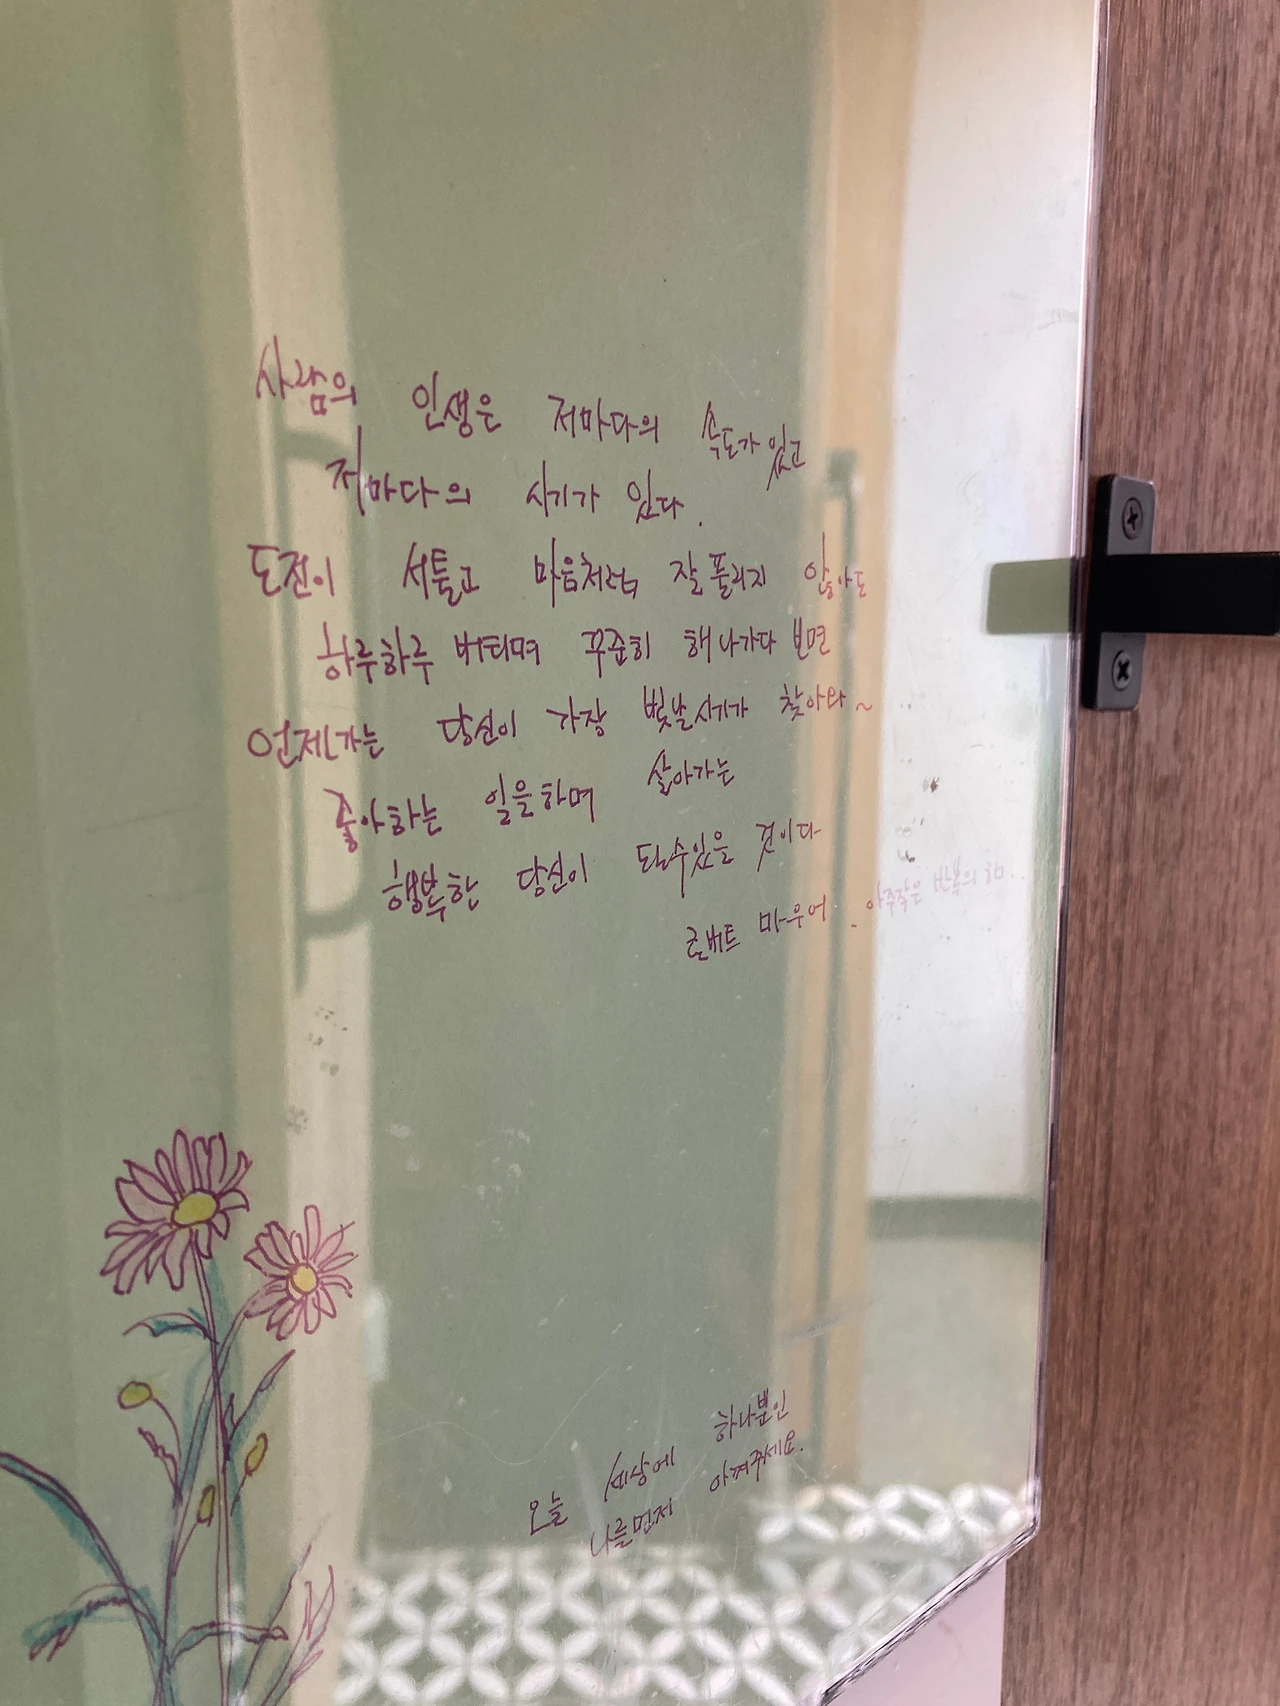 사람의 인생은 저마다의 속도가 있고
저마다의 시기가 있다.
도전이 서툴고 마음처럼 잘 풀리지 않아도
하루하루 버티며 꾸준히 해나가다 보면
언젠가는 당신이 가장 빛날시기가 찾아와~
좋아하는 일을하며 살아가는
행복한 당신이 될수있을 것이다
로버트 마우어. 아주작은 반복의 힘..
오늘 세상에 하나뿐인
나를먼저 아껴주세요.